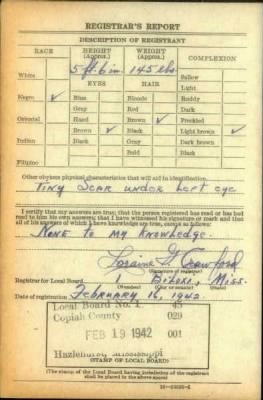 REGISTRAR'S REPORT
DESCRIPTION OF REGISTRANT
RACE HEIGHT (Approx.) WEIGHT (Approx.) COMPLEXION
White 5 ft. 6 in. 145 lbs. Sallow
EYES HAIR Light
Negro ✓ Blue Blonde Ruddy
Gray Red Dark
Oriental Hazel Brown ✓ Freckled
Brown ✓ Black Light brown ✓
Indian Black Gray Dark brown
Bald Black
Filipino
Other obvious physical characteristics that will aid in identification
Tiny scar under left eye
I certify that my answers are true; that the person registered has read or has had
read to him his own answers; that I have witnessed his signature or mark and that
all of his answers of which I have knowledge are true, except as follows:
None to my knowledge.
Crawford
(Signature of registrar)
Registrar for Local Board 1 Miss.
(Number) (City or county) (State)
Date of registration February 16, 1942
Local Board No. 1 45
Copiah County 029
FEB 19 1942 001
Hazlehurst, Mississippi
(STAMP OF LOCAL BOARD)
(The stamp of the Local Board having jurisdiction of the registrant
shall be placed in the above space.)